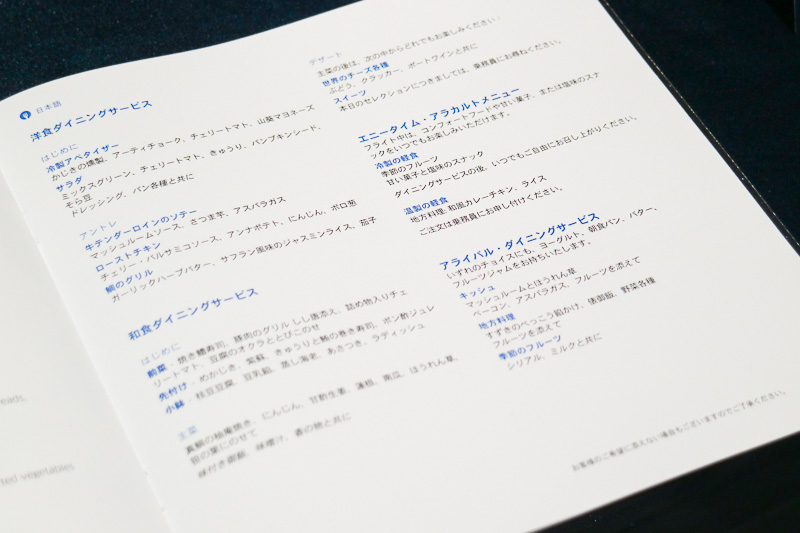 日本語
洋食ダイニングサービス
はじめに
冷製アペタイザー
かじきの燻製、アーティチョーク、チェリートマト、山葵マヨネーズ
サラダ
ミックスグリーン、チェリートマト、きゅうり、パンプキンシード、
そら豆
ドレッシング、パン各種と共に
アントレ
牛テンダーロインのソテー
マッシュルームソース、さつま芋、アスパラガス
ローストチキン
チェリー・バルサミコソース、アンナポテト、にんじん、ポロ葱
鯛のグリル
ガーリックハーブバター、サフラン風味のジャスミンライス、茄子
和食ダイニングサービス
はじめに
前菜 - 焼き鱒寿司、豚肉のグリル しし唐添え、詰め物入りチェ
リートマト、豆腐のオクラととびこのせ
先付け - めかじき、紫蘇、きゅうりと鮪の巻き寿司、ポン酢ジュレ
小鉢 - 枝豆豆腐、豆乳餡、蒸し海老、あさつき、ラディッシュ
主菜
真鯛の柚庵焼き、にんじん、甘酢生姜、蓮根、南瓜、ほうれん草、
笹の葉にのせて
味付き御飯、味噌汁、香の物と共に
デザート
主菜の後は、次の中からどれでもお楽しみください -
世界のチーズ各種
ぶどう、クラッカー、ポートワインと共に
スイーツ
本日のセレクションにつきましては、乗務員にお尋ねください。
エニータイム・アラカルトメニュー
フライト中は、コンフォートフードや甘い菓子、または塩味のスナ
ックをいつでもお楽しみいただけます。
冷製の軽食
季節のフルーツ
甘い菓子と塩味のスナック
ダイニングサービスの後、いつでもご自由にお召し上がりください。
温製の軽食
地方料理: 和風カレーチキン、ライス
ご注文は乗務員にお申し付けください。
アライバル・ダイニングサービス
いずれのチョイスにも、ヨーグルト、朝食パン、バター、
フルーツジャムをお持ちいたします。
キッシュ
マッシュルームとほうれん草
ベーコン、アスパラガス、フルーツを添えて
地方料理
すずきのべっこう餡かけ、俵御飯、野菜各種
フルーツを添えて
季節のフルーツ
シリアル、ミルクと共に
お客様のご希望に添えない場合もございますのでご了承ください。
eads,
ted vegetables